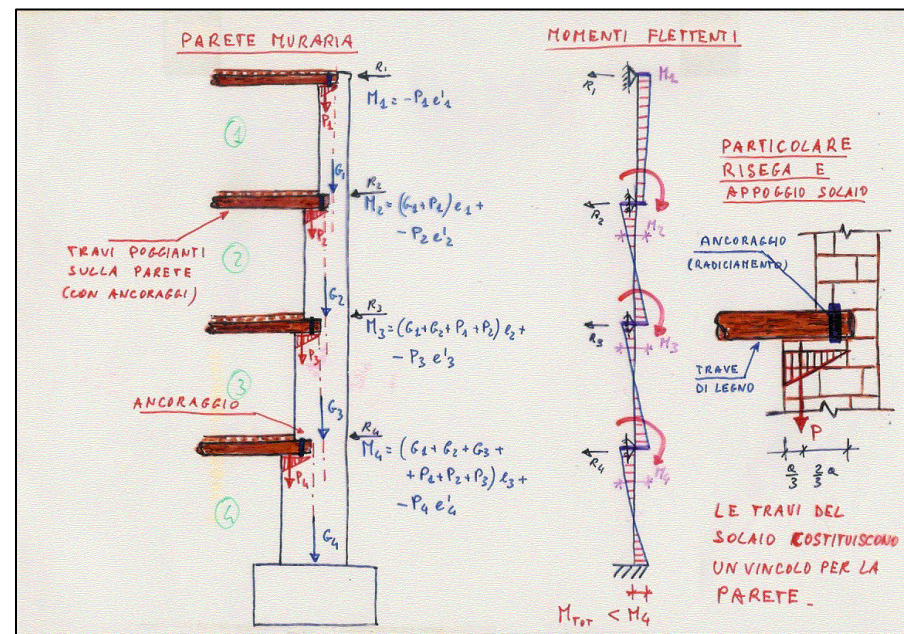 PARETE MURARIA
R1
M1 = -P1 e'1
P1
1
G1
R2
M2 = (G1+P1) e1 +
- P2 e'2
P2
TRAVI POGGIANTI
SULLA PARETE
(CON ANCORAGGI)
2
G2
R3
M3 = (G1+G2+P1+P2) e2 +
- P3 e'3
P3
3
ANCORAGGIO
G3
R4
M4 = (G1+G2+G3+
+P1+P2+P3) e3 +
- P4 e'4
P4
4
G4
MOMENTI FLETTENTI
M1
R1
R2
M2
R3
M3
R4
M4
MTOT < M4
PARTICOLARE
RISEGA E
APPOGGIO SOLAIO
ANCORAGGIO
(RADICIAMENTO)
TRAVE
DI LEGNO
P
a/3 2/3 a
LE TRAVI DEL
SOLAIO COSTITUISCONO
UN VINCOLO PER LA
PARETE_